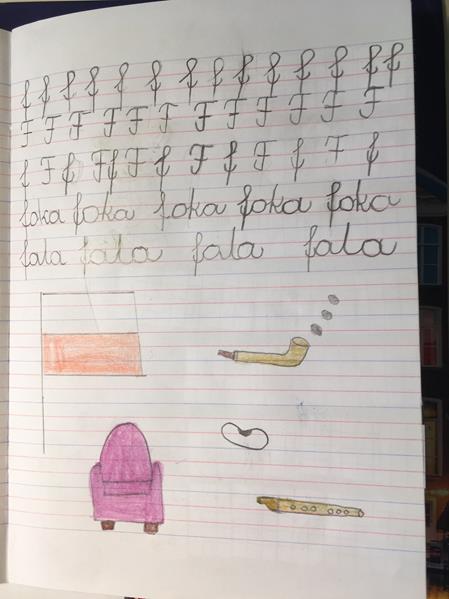 f f f f f f f f f f f f f f
F F F F F F F F F F F F
f F f F f F f F f F f F f
foka foka foka foka foka
fala fala fala fala